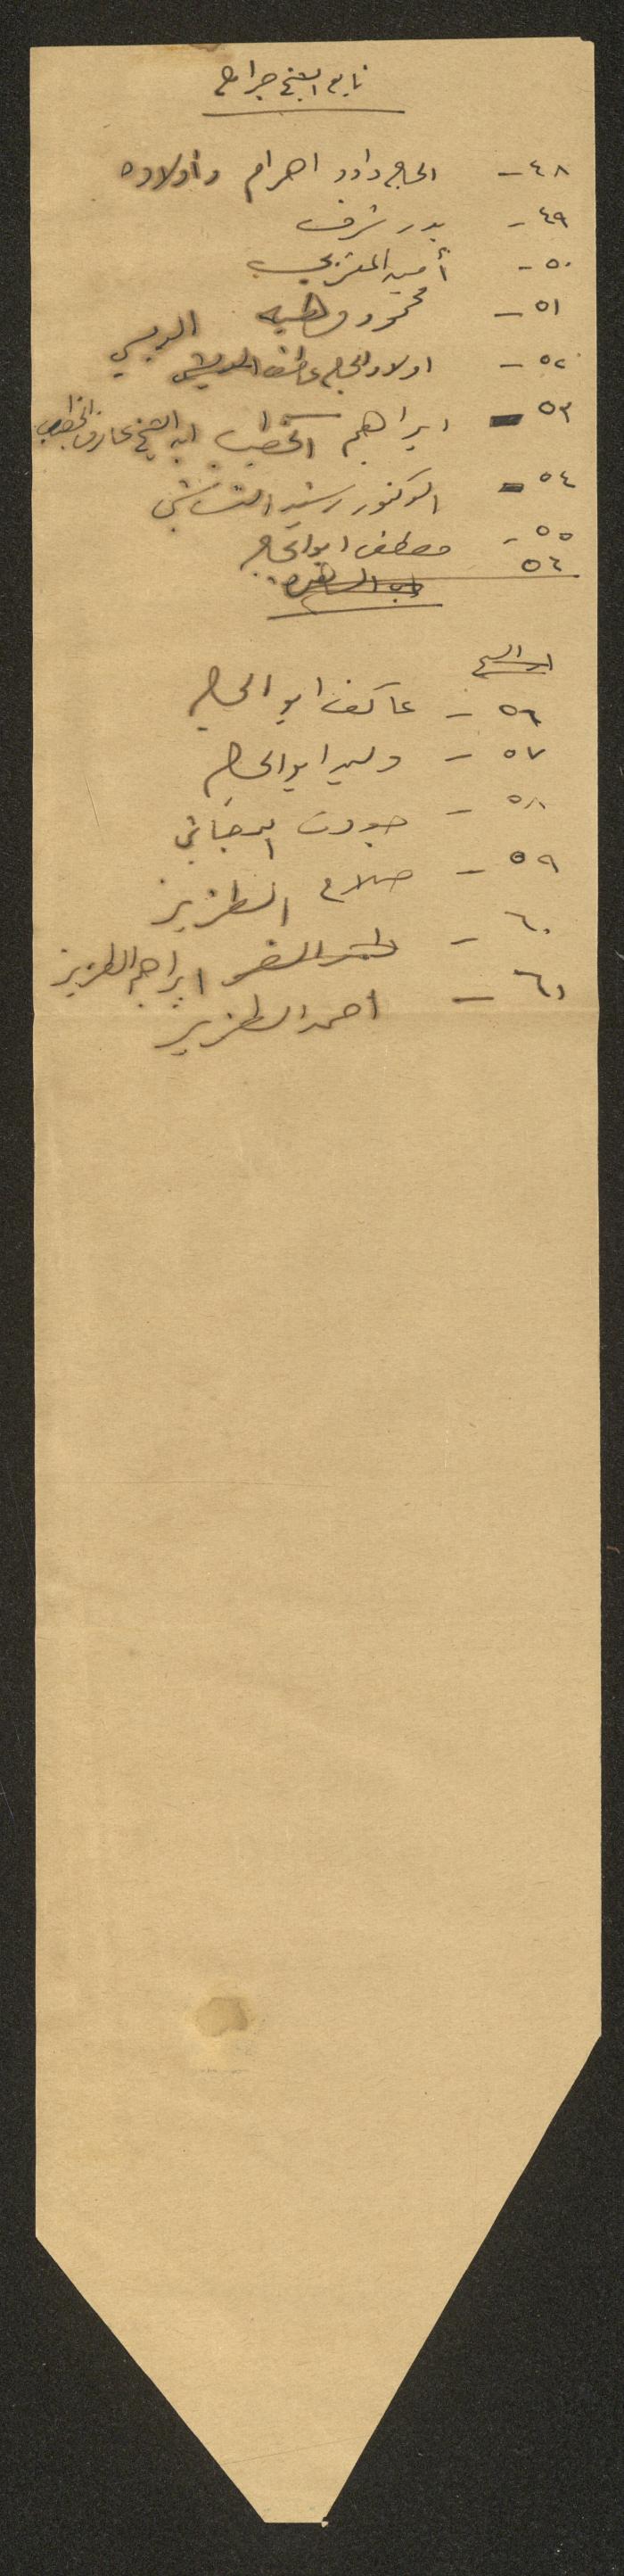 تابع الشيخ جراح
٤٨ - الحاج داود اهرام وأولاده
٤٩ - بدر شرف
٥٠ - أمين المغربي
٥١ - محمود وهبه
٥٢ - اولاد الحاج عاطف الديسي
٥٣ - ابراهيم الخطيب ابن الشيخ عارف الخطيب
٥٤ - الدكتور رشيد النشاشيبي
٥٥ - مصطفى ابو الحاج
٥٦
٥٦ - عاكف ابو الحاج
٥٧ - وليد ابو الحاج
٥٨ - جودت الدجاني
٥٩ - صلاح الطزيز
٦٠ - ابراهيم الطزيز
٦١ - احمد الطزيز